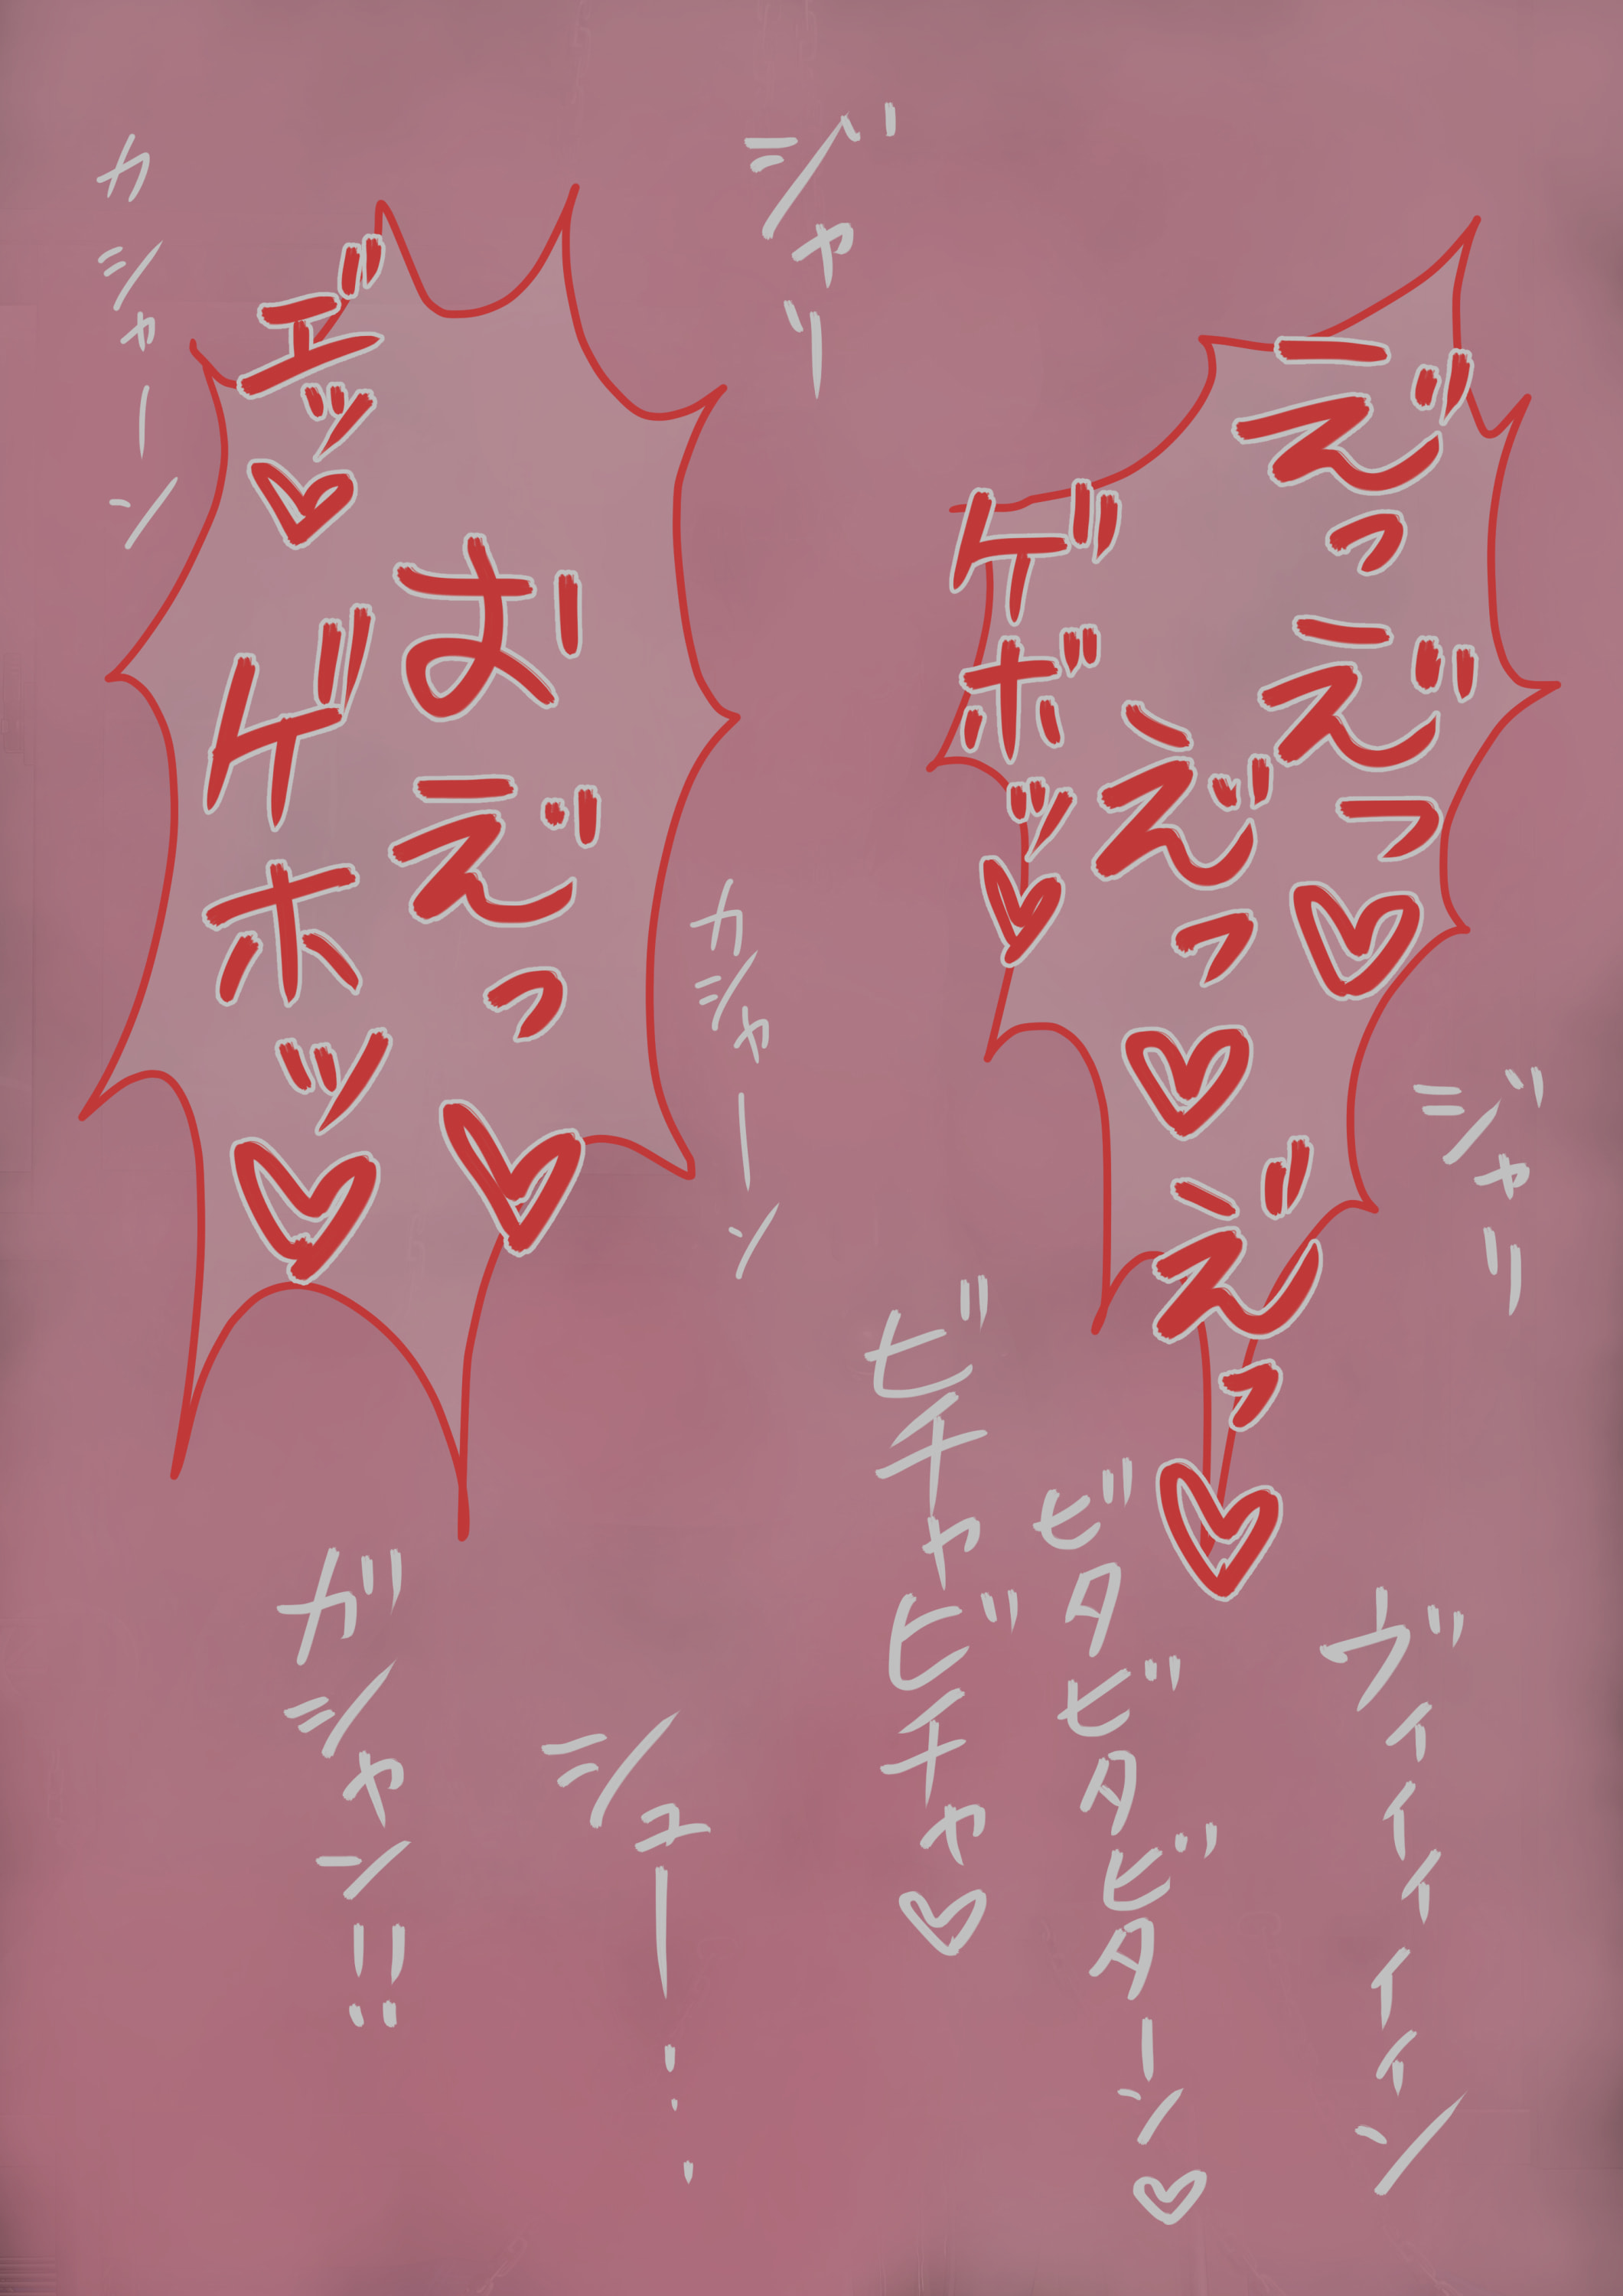 え゛っえ゛っ♡
え゛えっ♡え゛っ♡
ゲボッ♡
ジャリ
お゛え゛っ♡
エ゛ッ♡
ゲホッ♡
カシャーン
ジャリ
カシャーン
ヴィイイイイン
ビタビタビターン♡
ビチャビチャ♡
シュー・・・
ガシャン!!